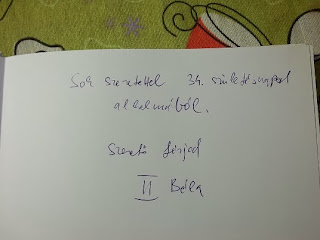 Sok szeretettel 34. születésnapod
alkalmából.
Szerető férjed
II Béla